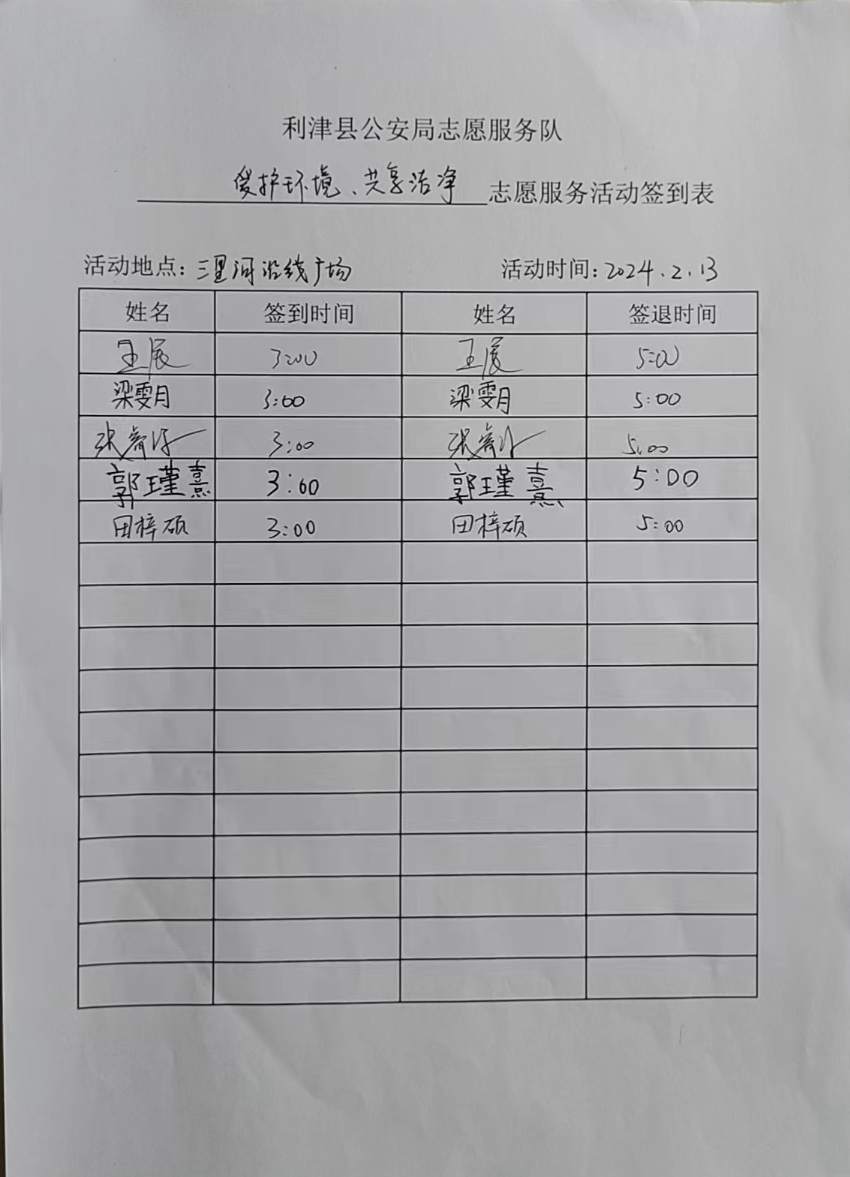 利津县公安局志愿服务队
爱护环境、共享洁净 志愿服务活动签到表
活动地点：三里河沿线广场 活动时间：2024.2.13
姓名 签到时间 姓名 签退时间
王展 3:00 王展 5:00
梁雯月 3:00 梁雯月 5:00
张 3:00 张 5:00
郭瑾熹 3:00 郭瑾熹 5:00
田梓硕 3:00 田梓硕 5:00